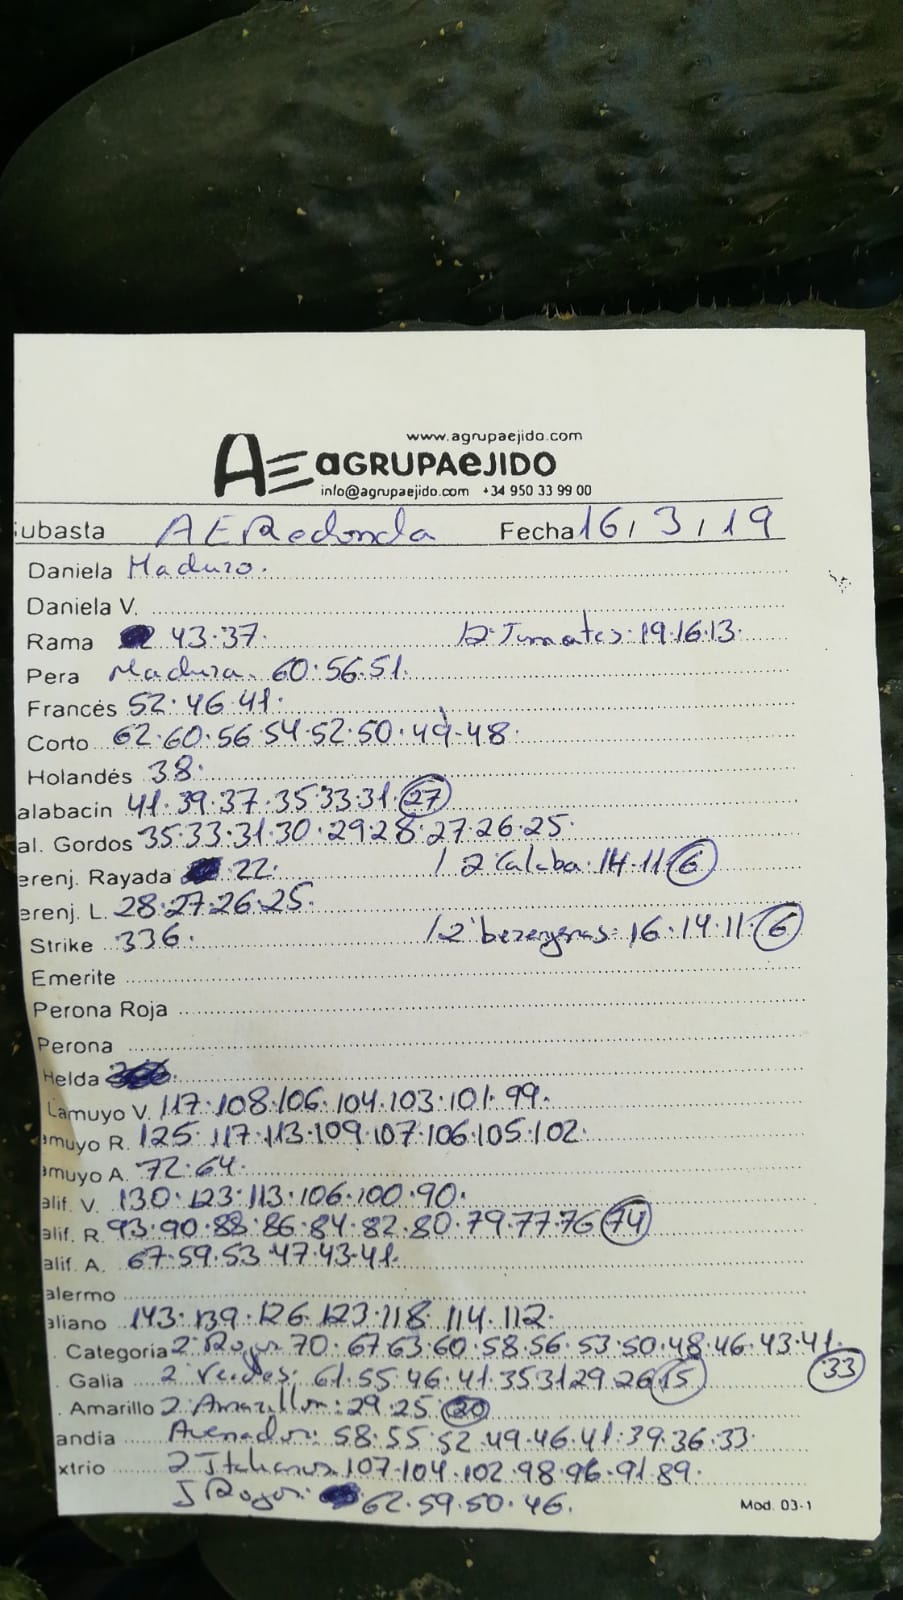 www.agrupaejido.com
AE aGRUPAeJIDO
info@agrupaejido.com +34 950 33 99 00
ubasta AERedonda Fecha 16, 3, 19
Daniela Maduro.
Daniela V.
Rama 43.37. 2ª Tomates: 19.16.13.
Pera Madura. 60.56.51.
Francés 52.46.41.
Corto 62.60.56.54.52.50.49.48.
Holandés 38.
alabacín 41.39.37.35.33.31.27
al. Gordos 35.33.31.30.29.28.27.26.25.
erenj. Rayada 22. 2ª Calaba: 14.11.6
erenj. L. 28.27.26.25.
Strike 336. 2ª berengenas: 16.14.11.6
Emerite
Perona Roja
Perona
Helda
Lamuyo V. 117.108.106.104.103.101.99.
amuyo R. 125.117.113.109.107.106.105.102.
amuyo A. 72.64.
alif. V. 130.123.113.106.100.90.
alif. R. 93.90.88.86.84.82.80.79.77.76 74
alif. A. 67.59.53.47.43.41.
alermo
aliano 143.139.126.123.118.114.112.
. Categoria 2ª Rojos 70.67.63.60.58.56.53.50.48.46.43.41.
33
Galia 2ª Verdes: 61.55.46.41.35.31.29.26.15
. Amarillo 2ª Amarillos: 29.25.20
andía 58.55.52.49.46.41.39.36.33.
xtrio 2ª Italianos 107.104.102.98.96.91.89.
J Rojos: 62.59.50.46.
Mod. 03-1